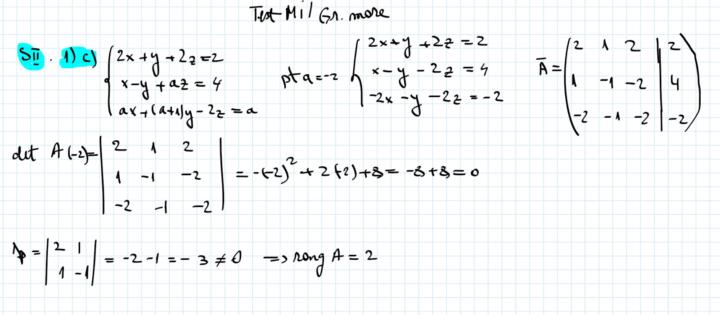 Test Mil Gr. mare
SII. 1) c) { 2x+y+2z=2
x-y+az=4
ax+(a+1)y-2z=a
pt a=-2 { 2x+y+2z=2
x-y-2z=4
-2x-y-2z=-2
Ā = ( 2 1 2 | 2
1 -1 -2 | 4
-2 -1 -2 | -2 )
det A(-2)= | 2 1 2
1 -1 -2
-2 -1 -2 | = -(-2)² + 2(-2)+8 = -8+8=0
Δp = | 2 1
1 -1 | = -2-1 = -3 ≠ 0 => rang A = 2